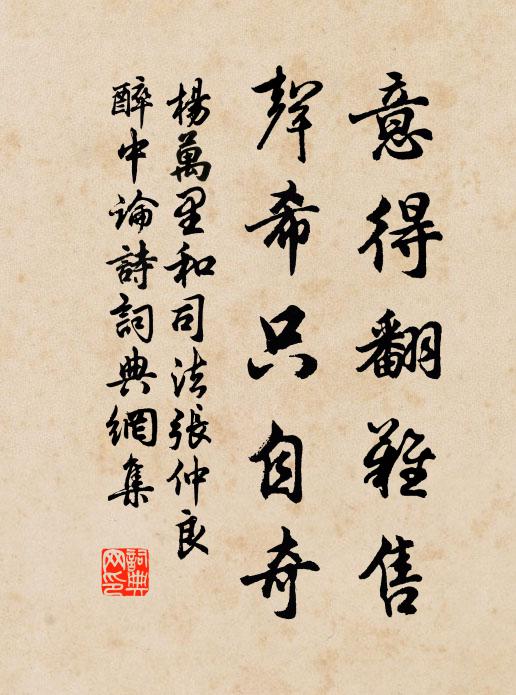 意得翻難售
聲希只自奇
楊萬里和司法張仲良
醉中論詩詞典網集
詞典網印